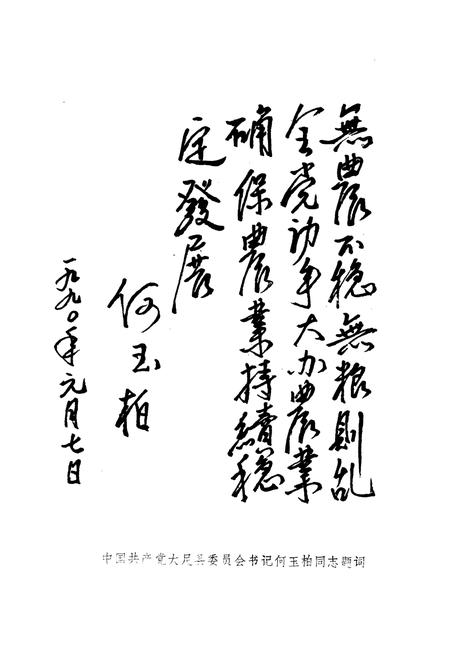 無農不稳無粮則乱
全党动手大办農業
确保農業持續稳
定發展
何玉柏
一九九〇年元月七日
中国共产党大足县委员会书记何玉柏同志题词